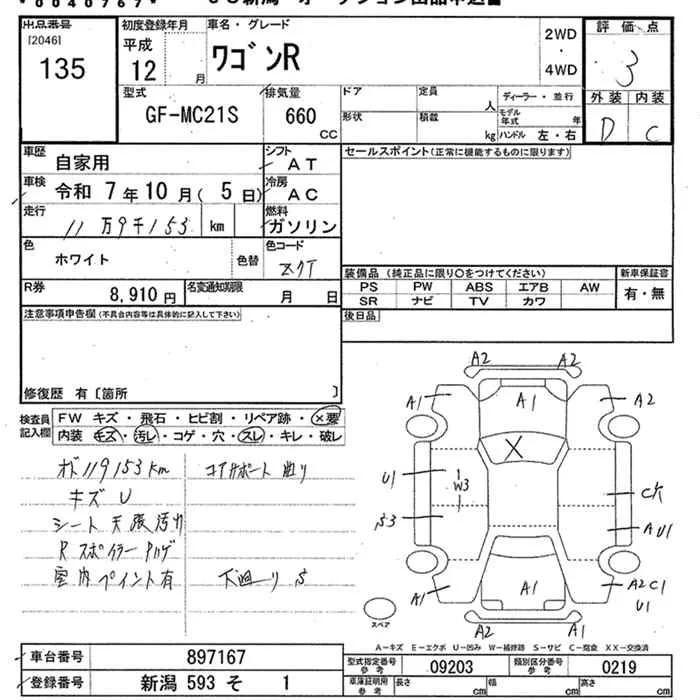 *0040767*
出品番号
[2046]
135
初度登録年月
平成
12 月
車名・グレード
ワゴンR
2WD
・
4WD
評価点
3
外装 内装
D C
型式
GF-MC21S
排気量
660
CC
ドア
定員
人
形状
積載
kg
ディーラー・並行
モデル年式 年
ハンドル 左・右
車歴
自家用
シフト
AT
車検
令和 7年10月(5日)
冷房
AC
走行
11万9千153 km
燃料
ガソリン
色
ホワイト
色替
色コード
Z7T
R券
8,910円
名変通知期限
月 日
セールスポイント(正常に機能するものに限ります)
装備品(純正品に限り○をつけてください)
PS PW ABS エアB AW
SR ナビ TV カワ
新車保証書
有・無
後日品
注意事項申告欄(不具合内容等は具体的に記入して下さい)
修復歴 有〔箇所 〕
検査員記入欄
FW キズ・飛石・ヒビ割・リペア跡・×要
内装 キズ・汚レ・コゲ・穴・スレ・キレ・破レ
オド119153km
キズU
シート天張汚れ
Rスポイラーハゲ
室内ペイント有
コアサポート曲り
下廻りS
A2 A2
A1 A1 A2
X
U1 W3
S3
A U1
A1 A1 A2 C1
U1
A2 A1
スペア
A-キズ E-エクボ U-凹ミ W-補修跡 S-サビ C-腐食 XX-交換済
車台番号 897167
登録番号 新潟 593 そ 1
型式指定番号 参考 09203
類別区分番号 参考 0219
車庫証明用 参考 長さ cm 幅 cm 高さ cm